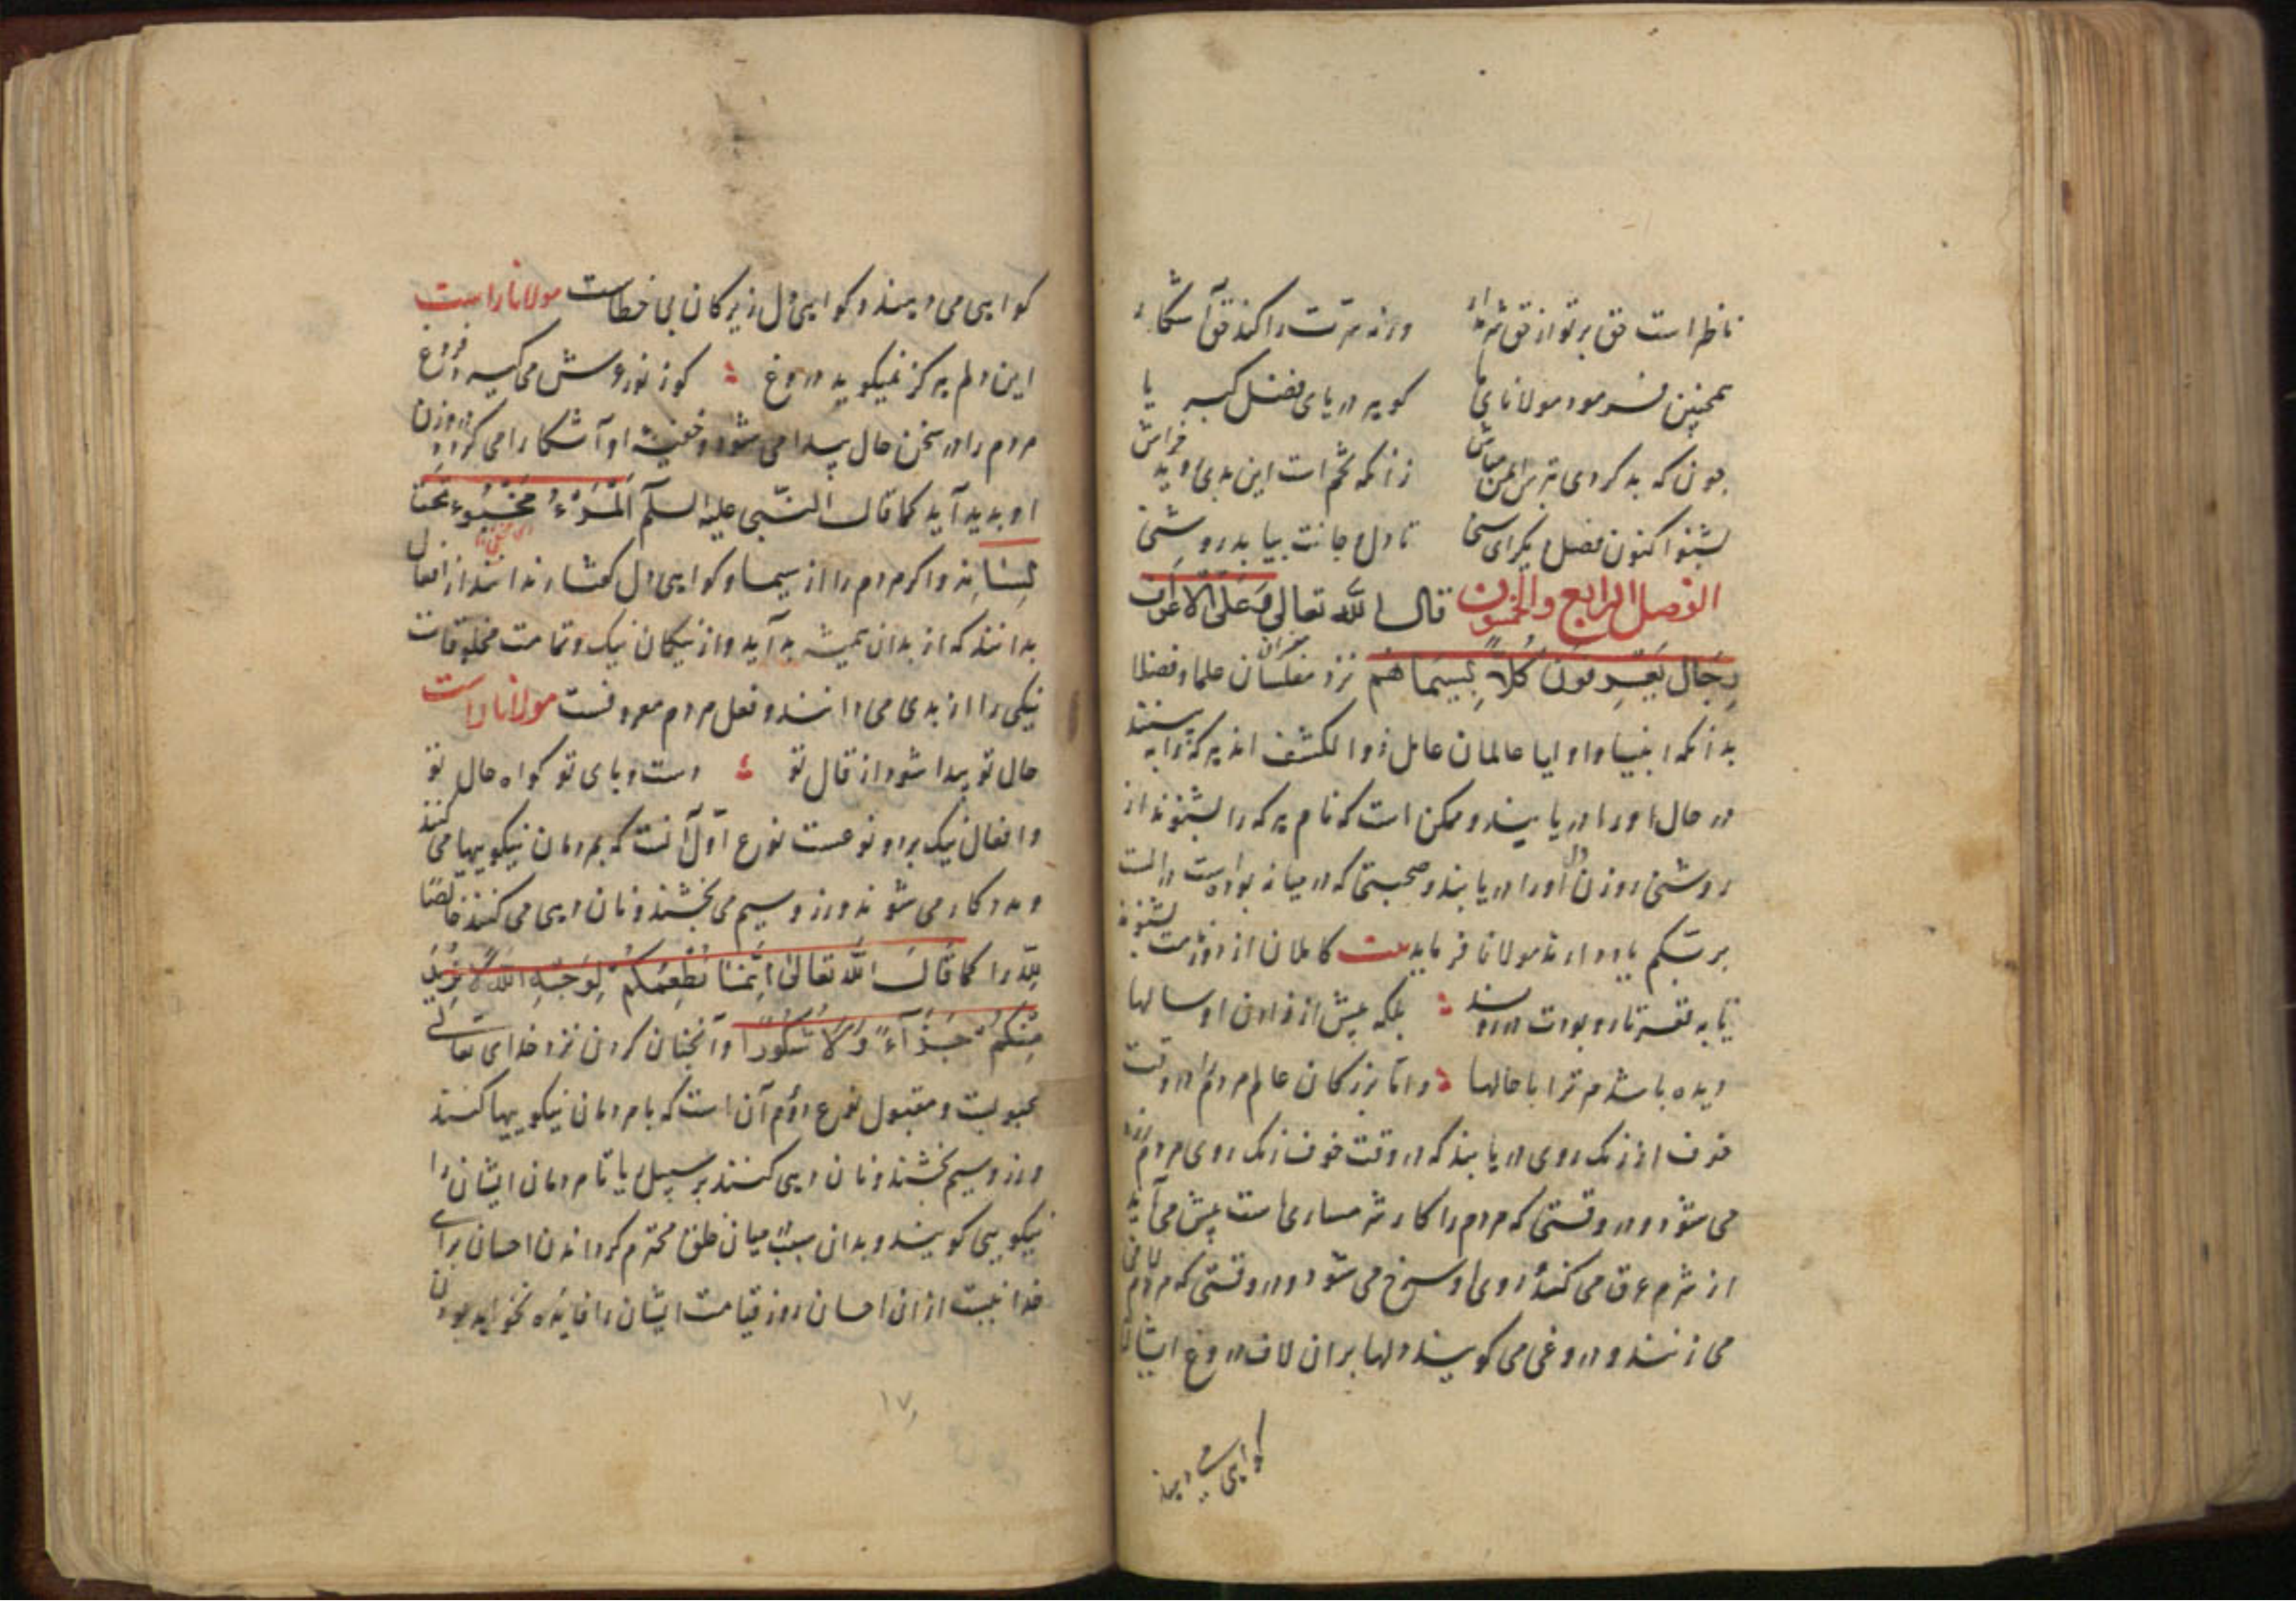 ناظر است حق بر تو از حق شرم دار ورنه سرّت را کند حق آشکار
همچنین فرمود مولانای ما کو به دریای فضل کبریا
چون که بد کردی بترس ایمن مباش زانکه تخم است این بدی و
بشنو اکنون فصل دیگر ای سنی تا دل و جانت بیابد روشنی
الفصل الرابع والخمسون قال الله تعالی وَعَلَی الْاَعْرَافِ
رِجَالٌ یَعْرِفُونَ کُلّاً بِسِیمَاهُمْ نزد مفسران علما و فضلا
بدانکه انبیا و اولیا عالمان عامل ذوا لکشف اند هر که را به بینند
در حال او را دریابند و ممکن است که نام هر که را بشنوند از
روشنی روزن دل او را دریابند و صحبتی که در میانه بوده است
یاد دارند مولانا فرماید بیت کاملان از دور نامت بشنوند
تا به قعر تار و بودت در روند بلکه پیش از زادن تو سالها
دیده باشندم ترا با حالها و اما بزرگان عالم مردم را در وقت
خوف از رنک روی دریابند که در وقت خوف رنک روی مردم زرد
می شود و در وقتی که مردم را کار شرمساری پیش می آید
از شرم عرق می کند و روی او سرخ می شود و در وقتی که مردم لافی
می زنند و دروغی می کویند دلها بر ان لاف دروغ ایشان
کواهی می دهند
کواهی می دهند و کواهی دل زیرکان بی خطاست مولانا راست
این دلم هرکز نمیکوید دروغ کو ز نور عرش می کیرد فروغ
مردم را در سخن حال پیدا می شود و خفیهٔ او آشکارا می کردد و وزن
او بدید آید کما قال النّبی علیه السلم اَلْمَرْءُ مَخْبُوءٌ تَحْتَ
لِسَانِهِ واکر مردم را از سیما و کواهی دل کفتار ندانند از افعال
بدانند که از بدان همیشه بد آید و از نیکان نیک و تمامت مخلوقات
نیکی را از بدی می دانند و فعل مردم معروفست مولانا راست
حال تو پیدا شود از قال تو دست و پای تو کواه حال تو
و افعال نیک بر دو نوعست نوع اوّل آنست که بمردمان نیکوییها می کنند
و مددکار می شوند و زر و سیم می بخشند و نان دهی می کنند خالصًا
لِلّه را کما قال الله تعالی اِنَّمَا نُطْعِمُکُمْ لِوَجْهِ اللهِ لَا نُرِیدُ
مِنْکُمْ جَزَآءً وَلَا شُکُورًا و آنچنان کردن نزد خدای تعالی
محبوبست و مقبول نوع دوّم آن است که با مردمان نیکوییها کنند
و زر و سیم بخشند و نان دهی کنند بر سبیل ریا تا مردمان ایشان را
نیکویی کویند و بدان سبب میان خلق محترم کردانند ان احسان برای
خدا نیست از ان احسان روز قیامت ایشان را فایده نخواهد بودن
۱۷